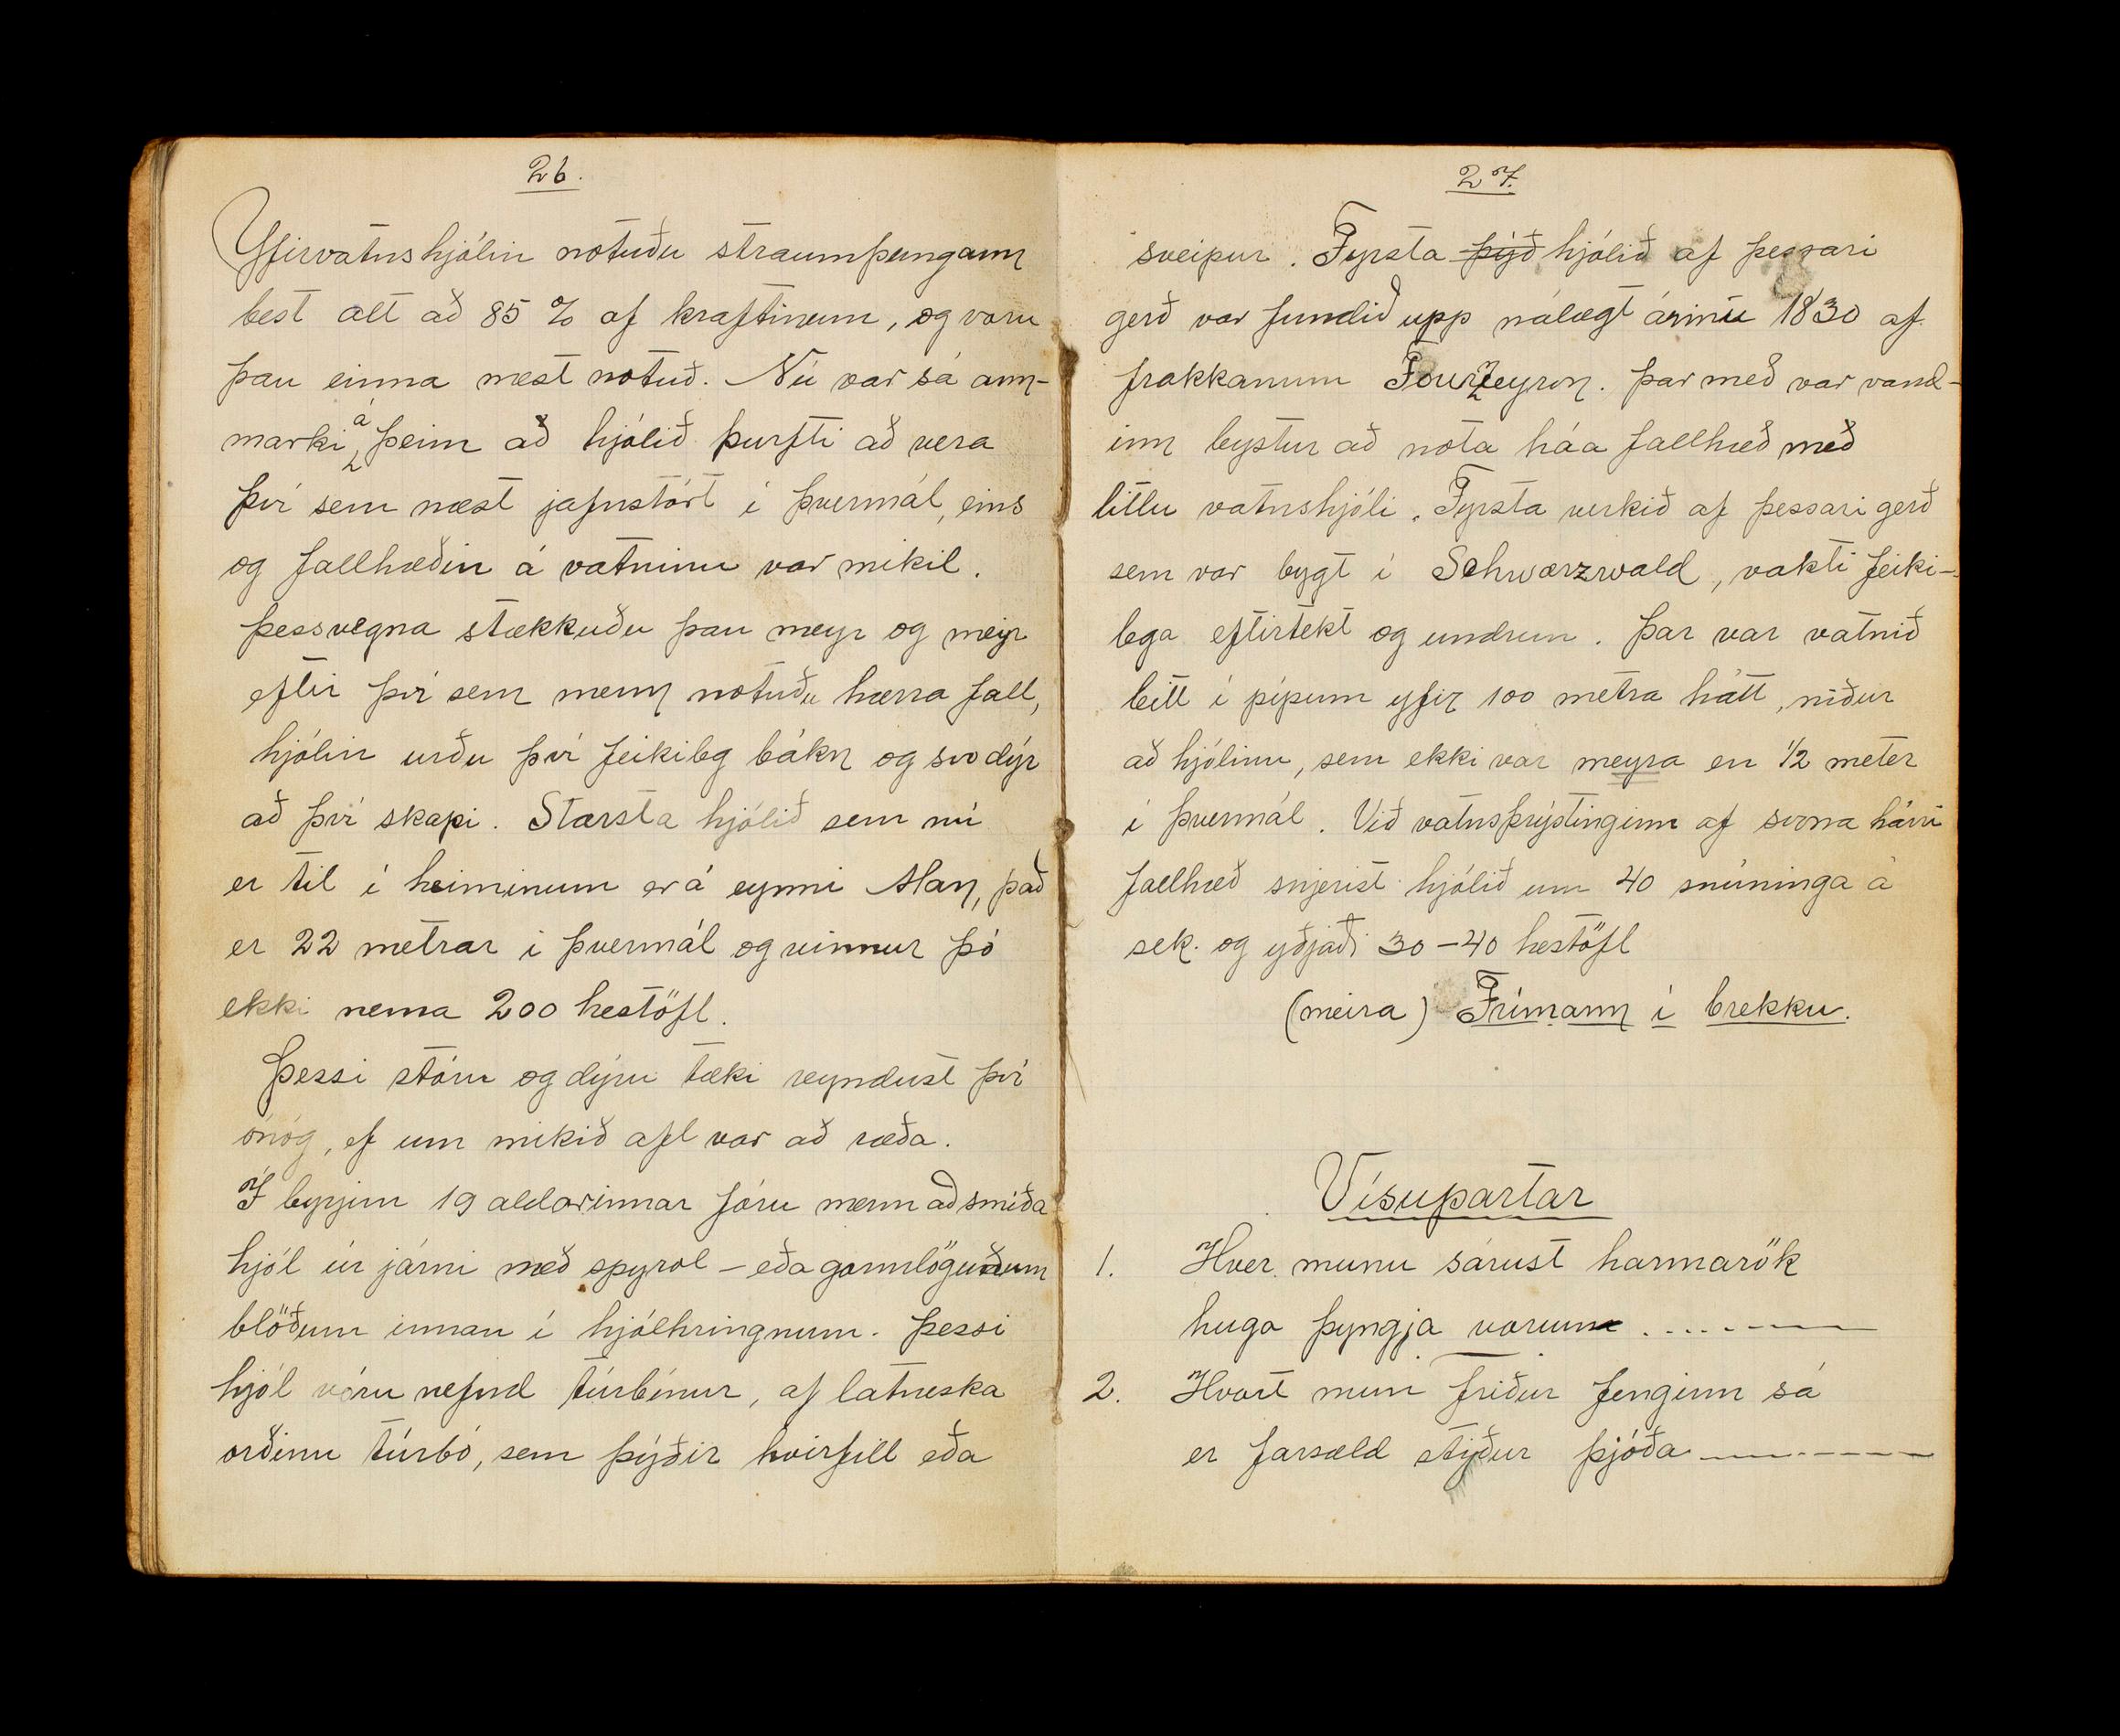 26.
Yfirvatnshjólin notuðu straumþungann
best alt að 85 % af kraftinum, og voru
þau einna mest notuð. Nú var sá ann-
marki á þeim að hjólið þurfti að vera
því sem næst jafnstórt í þvermál, eins
og fallhæðin á vatninu var mikil.
Þessvegna stækkuðu þau meyr og meyr
eftir því sem menn notuðu hærra fall,
hjólin urðu því feikileg bákn og svo dýr
að því skapi. Stærsta hjólið sem nú
er til í heiminum er á eynni Man, það
er 22 metrar í þvermál og vinnur þó
ekki nema 200 hestöfl.
Þessi stóru og dýru tæki reyndust því
ónóg, ef um mikið afl var að ræða.
Í byrjun 19 aldarinnar fóru menn að smíða
hjól úr járni með spyral - eða gormlöguðum
blöðum innan í hjólhringnum. Þessi
hjól vóru nefnd túrbínur, af latneska
orðinu túrbó, sem þýðir hvirfill eða
27.
sveipur. Fyrsta þýð hjólið af þessari
gerð var fundið upp nálægt árinu 1830 af
frakkanum Fourneyron. Þar með var vand-
inn leystur að nota háa fallhæð með
litlu vatnshjóli. Fyrsta verkið af þessari gerð
sem var bygt í Schwarzwald, vakti feiki-
lega eftirtekt og undrun. Þar var vatnið
leitt í pípum yfir 100 metra hátt, niður
að hjólinu, sem ekki var meyra en 1/2 meter
í þvermál. Við vatnsþrýstinginn af svona hárri
fallhæð snjerist hjólið um 40 snúninga á
sek. og yðjaði 30-40 hestöfl
(meira) Frímann í brekku.
Vísupartar
1. Hver munu sárust harmarök
huga þyngja vorum ........
2. Hvort mun friður fenginn sá
er farsæld styður þjóða --------